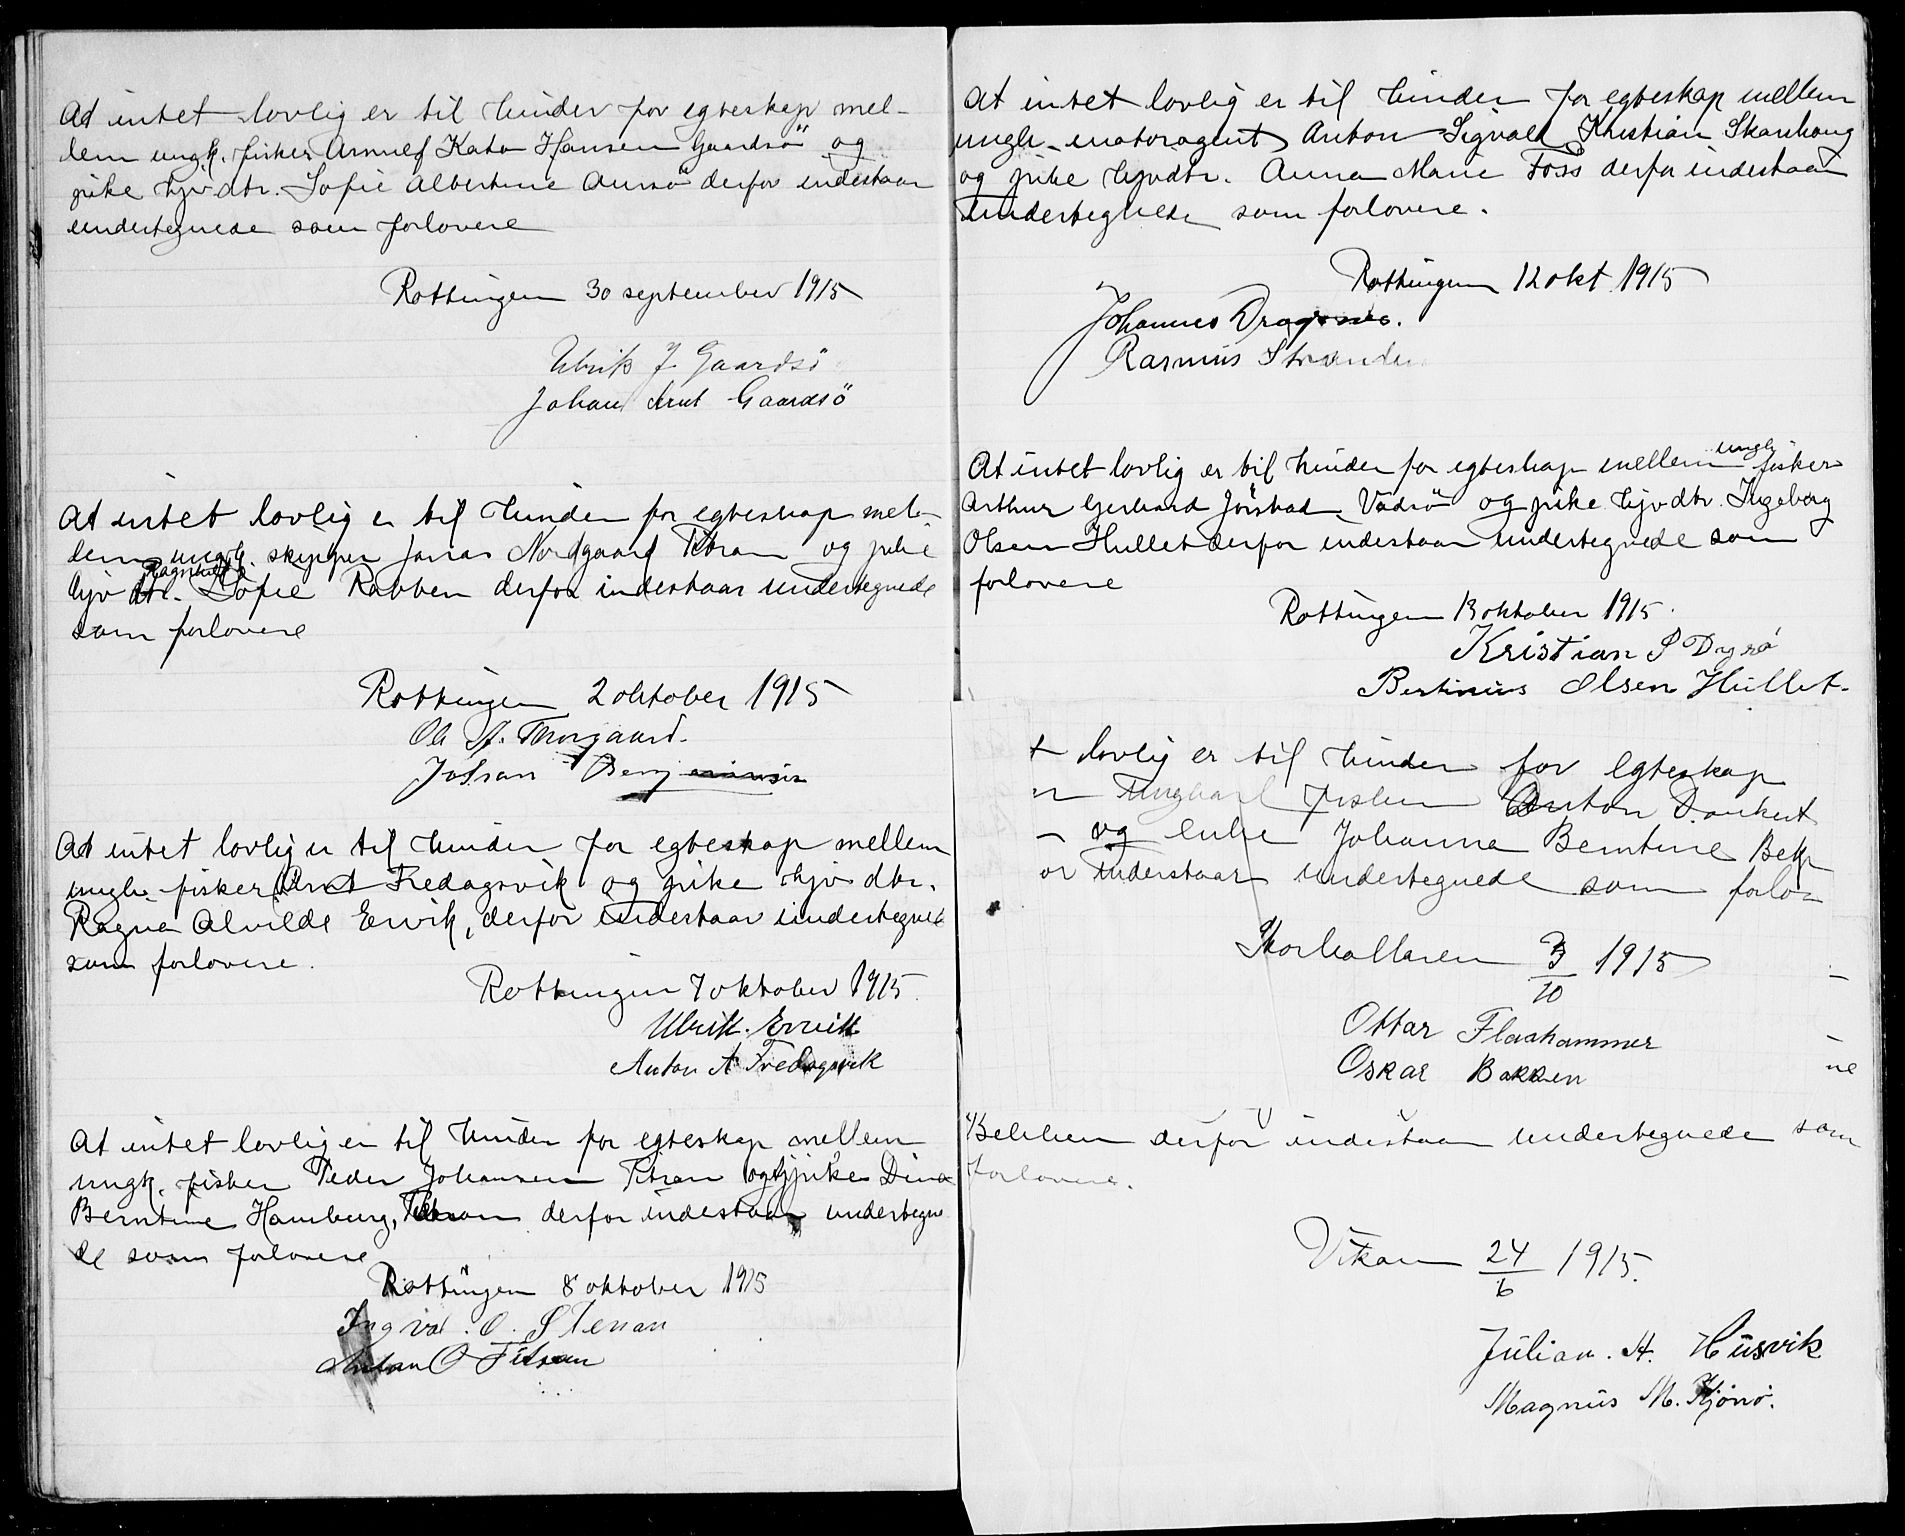 At intet lovlig er til hinder for egteskap mel-
lem ungk. fisker Arnulf Kato Hansen Gaardsö og
pike hjv dtr. Sofie Albertine Aunsö derfor indestaar
undertegnede som forlovere
Rottingen 30 september 1915
Ulrik J Gaardsö
Johan Arnt Gaardsö
At intet lovlig er til hinder for egteskap mel-
lem ungk. skipper Jonas Nordgaard Titran og pike
Ragnhild
hjv dtr. Sofie Rabben derfor indestaar undertegnede
som forlovere
Rottingen 2 oktober 1915
Ole A. Thorgaard.
Johan Benjaminsen
At intet lovlig er til hinder for egteskap mellem
ungk. fisker Arnt Fredagsvik og pike hjv dtr.
Ragna Alvilde Ervik, derfor indestaar undertegnede
som forlovere.
Rottingen 7 oktober 1915.
Ulrik. Ervik
Anton A Fredagsvik
At intet lovlig er til hinder for egteskap mellem
ungk. fisker Peder Johansen Titran og pike Dina
Berntine Hamburg, Titran derfor indestaar undertegne
de som forlovere
Rottingen 8 oktober 1915
Ingval. O. Stenan
Anton O Titran
At intet lovlig er til hinder for egteskap mellem
ungk. motoragent Anton Sigvald Kristian Skarshaug
og pike hjvdtr. Anna Marie Foss derfor indestaar
undertegnede som forlovere.
Rottingen 12 okt 1915
Johannes Dragsnes.
Rasmus Strand
At intet lovlig er til hinder for egteskap mellem ungk. fisker
Arthur Gerhard Jörstad, Vadsö og pike hjv dtr. Ingeborg
Olsen Hullet derfor indestaar undertegnede som
forlovere
Rottingen 13 oktober 1915.
Kristian P Dyrö
Bertinius Olsen Hullet.
t lovlig er til hinder for egteskap
m Ungkarl fisker Anton Dankert
og enke Johanna Berntine Bekk
or inderstaar undertegnede som forlo-
Storhallaren 3/10 1915
Ottar Flashammer
Oskar Bakken
ne
Bekken derfor indestaar undertegnede som
forlovere.
Vikan 24/6 1915.
Julian. H. Husvik
Magnus M. Kjönö.